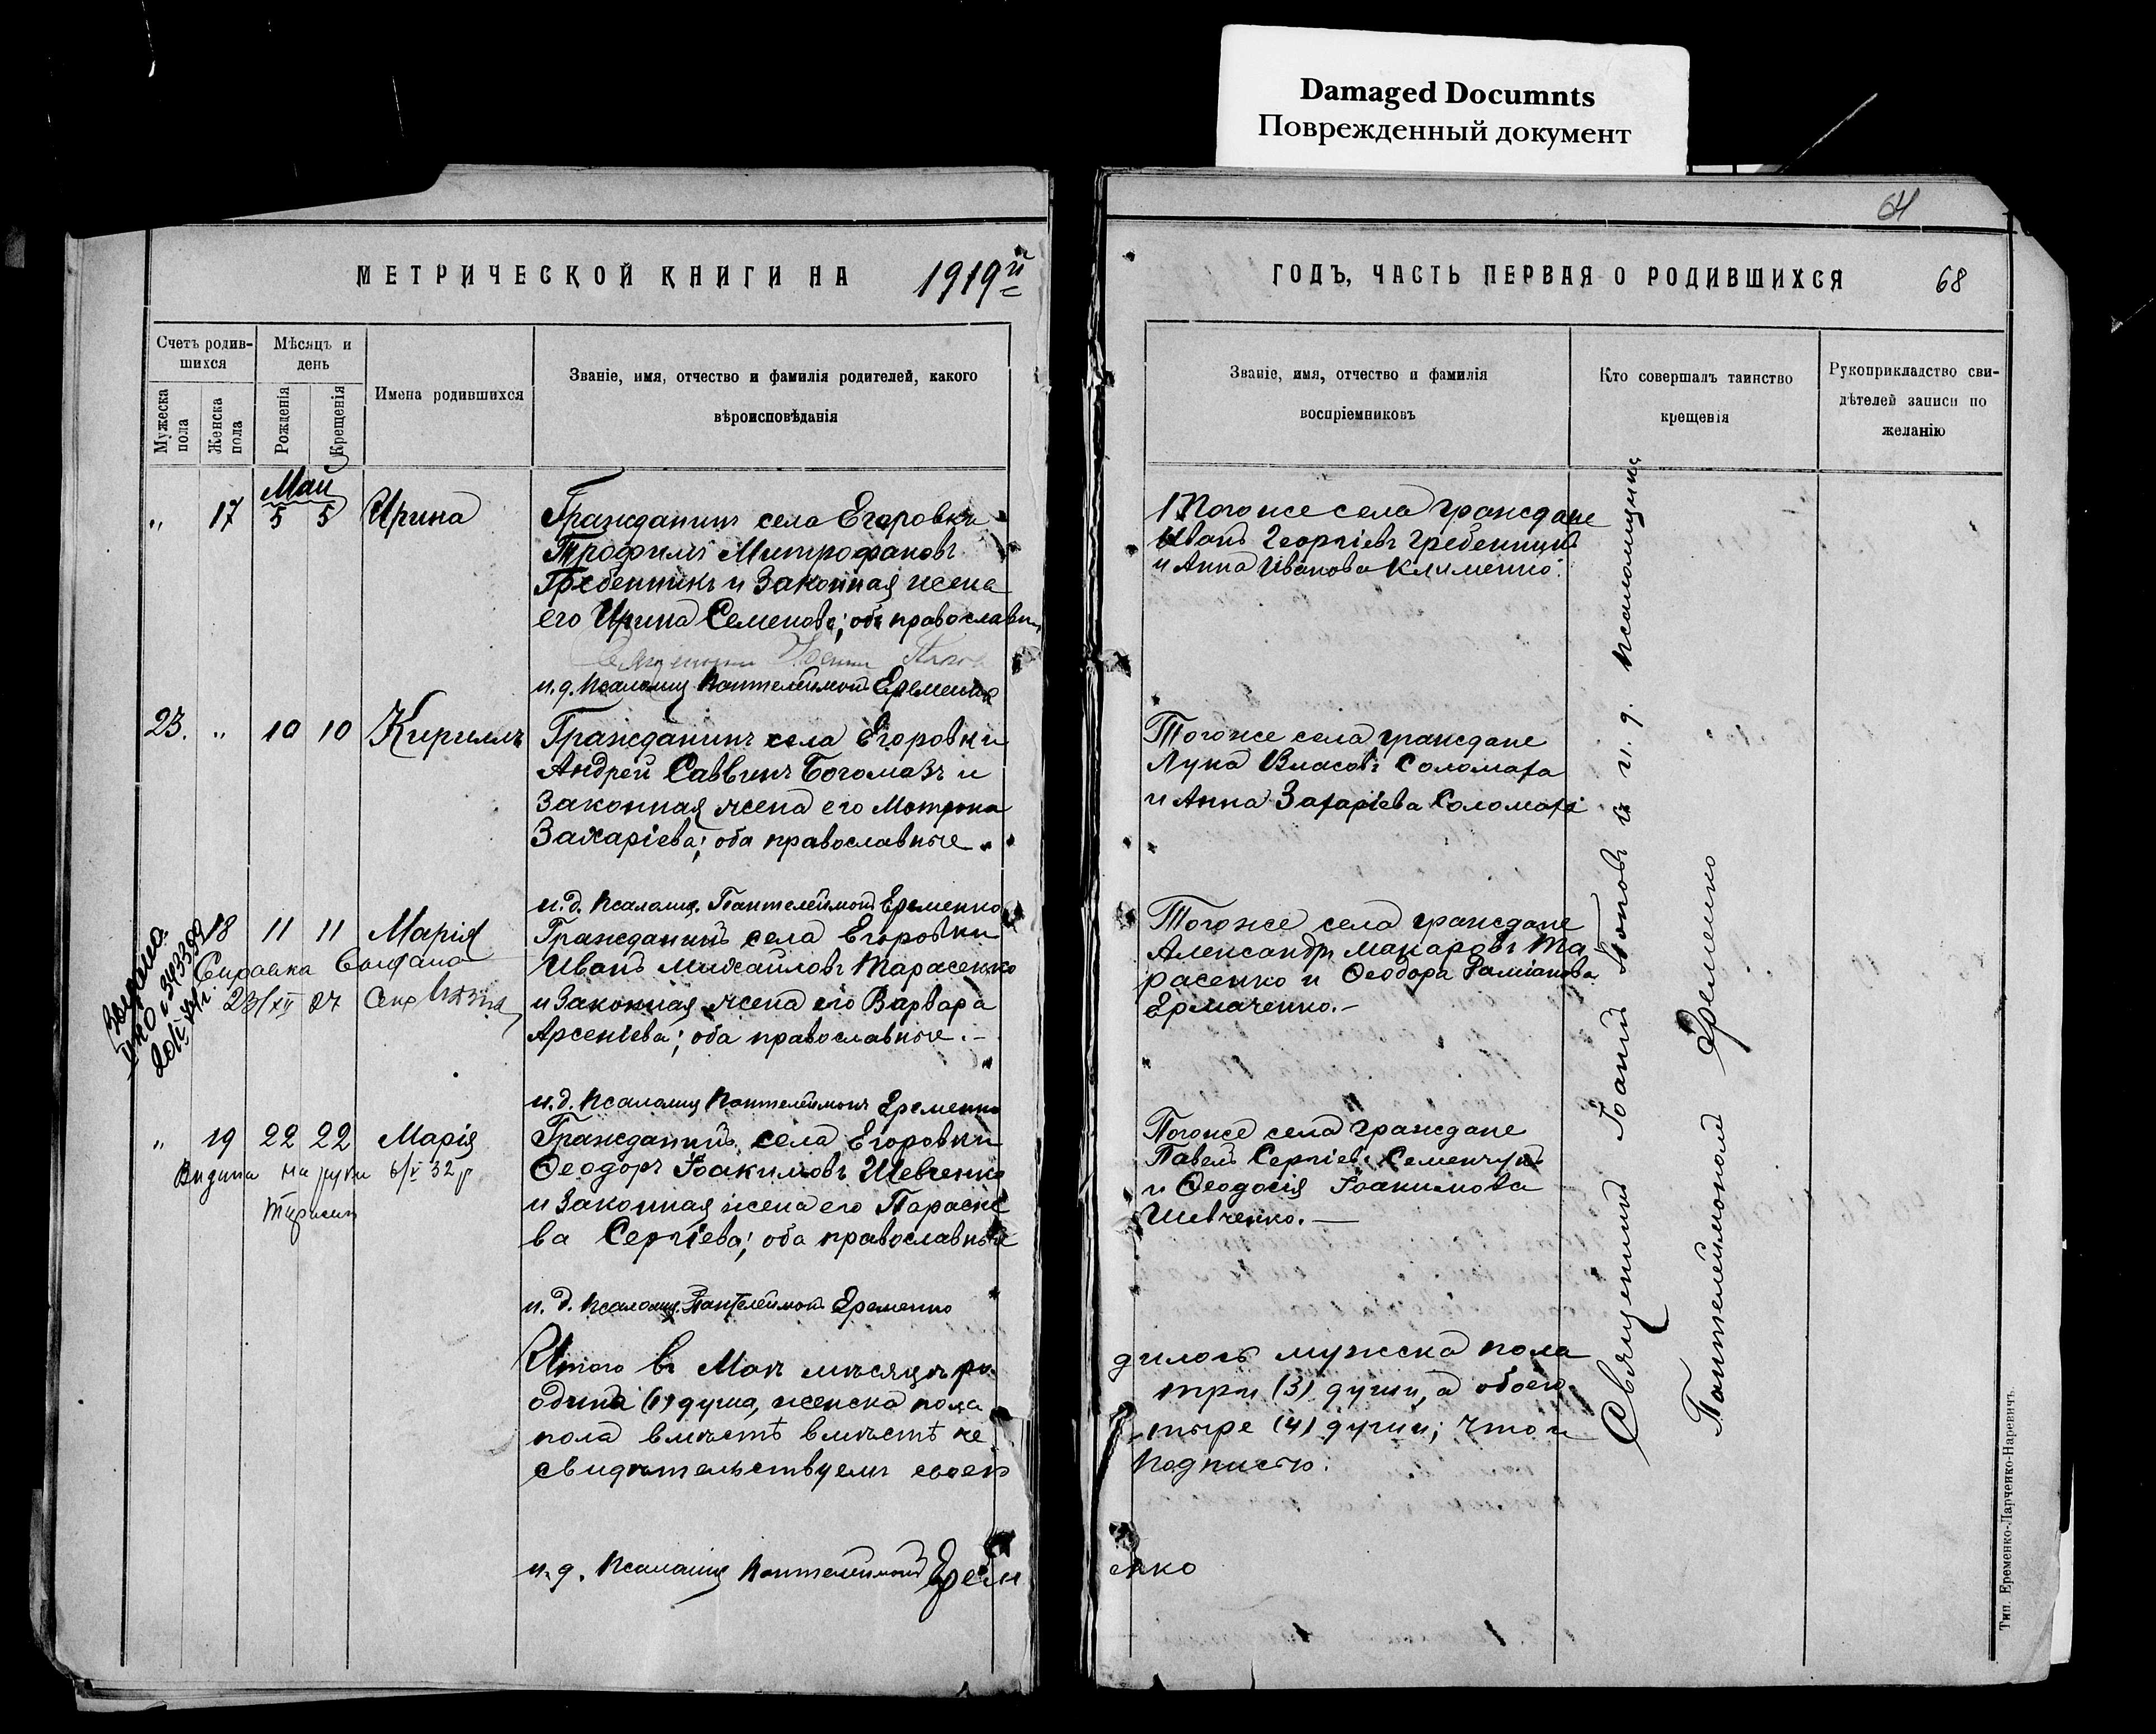 Damaged Documnts
Поврежденный документ
МЕТРИЧЕСКОЙ КНИГИ НА 1919й
Счетъ родив-
шихся
Мѣсяцъ и
день
Мужеска
пола
Женска
пола
Рожденія
Крещенія
Имена родившихся
Званіе, имя, отчество и фамилія родителей, какого
вѣроисповѣданія
Май
„ 17 5 5 Ирина
Гражданинъ села Егоровки
Трофимъ Митрофановъ
Гребенникъ и законная жена
его Ирина Семенова; оба православн
и.д. псаломщ Пантелеимонъ Еременко
23. „ 10 10 Кириллъ
Гражданинъ села Егоровки
Андрей Саввинъ Богомазъ и
законная жена его Матрона
Захаріева; оба православные.
и.д. псаломщ. Пантелеимонъ Еременко
18 11 11 Марія
Справка
Гражданинъ села Егоровки
Иванъ Михаиловъ Тарасенко
и законная жена его Варвара
Арсеніева; оба православные.–
и.д. псаломщ Пантелеимонъ Еременко
„ 19 22 22 Марія
Видана на руки 6/V 32 р
Гражданинъ села Егоровки
Ѳеодоръ Іоакимовъ Шевченко
и законная жена его Параске
ва Сергіева; оба православные
и.д. псаломщ. Пантелеимонъ Еременко
Итого въ Маѣ мѣсяцѣ ро
одина (1) душа, женска пола
пола вмѣстѣ вмѣстѣ че
свидѣтельствуемъ своею
и.д. псаломщ Пантелеимонъ Ерем
64
ГОДЪ, ЧАСТЬ ПЕРВАЯ О РОДИВШИХСЯ 68
Званіе, имя, отчество и фамилія
воспріемниковъ
Кто совершалъ таинство
крещенія
Рукоприкладство сви-
дѣтелей записи по
желанію
Тогоже села граждане
Иванъ Георгіевъ Гребенникъ
и Анна Иванова Клименко.
Тогоже села граждане
Лука Власовъ Соломаха
и Анна Захаріева Соломаха
Тогоже села граждане
Александръ Макаровъ Та
расенко и Ѳеодора Даміанова
Ермаченко.–
Тогоже села граждане
Павелъ Сергіевъ Семенчукъ
и Ѳеодосія Іоакимова
Шевченко.—
дилось мужска пола
три (3) души, а обоего
тыре (4) души; что и
подписью.
енко
Священникъ Іоаннъ Поповъ и и.д. псаломщика
Пантелеимонъ Еременко
Тип. Еременко-Ларченко-Наревичъ.